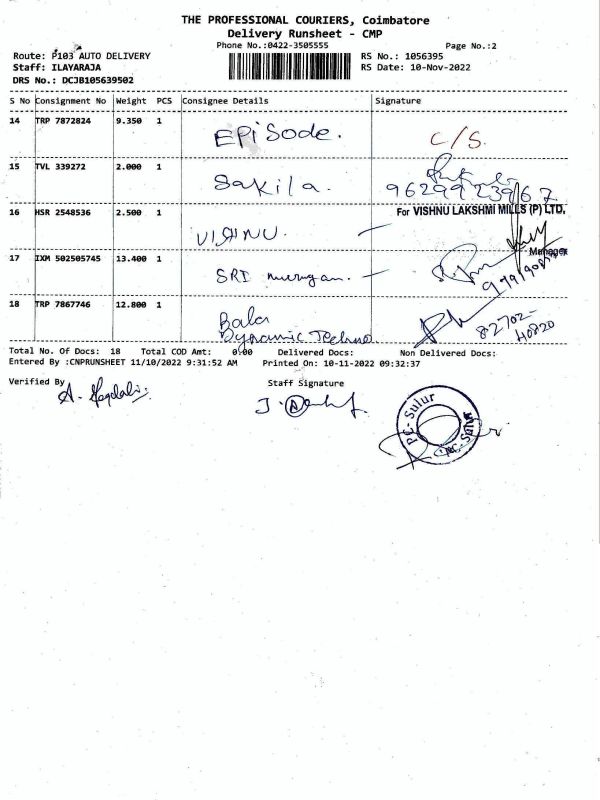 THE PROFESSIONAL COURIERS, Coimbatore
Delivery Runsheet - CMP
Phone No.:0422-3505555 Page No.:2
Route: P103 AUTO DELIVERY RS No.: 1056395
Staff: ILAYARAJA RS Date: 10-Nov-2022
DRS No.: DCJB105639502
S No Consignment No Weight PCS Consignee Details Signature
14 TRP 7872824 9.350 1 EPiSode. C/S.
15 TVL 339272 2.000 1 Sakila.
9629923967
16 HSR 2548536 2.500 1 VISHNU. For VISHNU LAKSHMI MILLS (P) LTD,
Manager
17 IXM 502505745 13.400 1 SRI murugan.
18 TRP 7867746 12.800 1 Bala
Dynamic Techno
82702-
40820
Total No. Of Docs: 18 Total COD Amt: 0.00 Delivered Docs: Non Delivered Docs:
Entered By :CNPRUNSHEET 11/10/2022 9:31:52 AM Printed On: 10-11-2022 09:32:37
Verified By Staff Signature
PC-Sulur
PC-Sulur